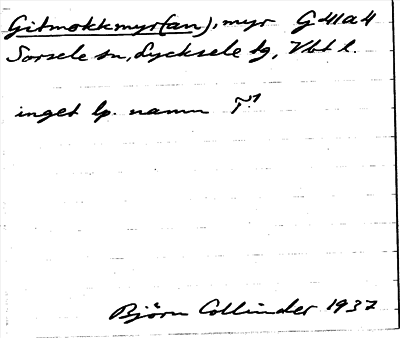 Gitmokkmyr(an), myr G 41 a 4
Sorsele sn, Lycksele tg, Vbt l.
inget lp. namn T.¹
Björn Collinder 1937